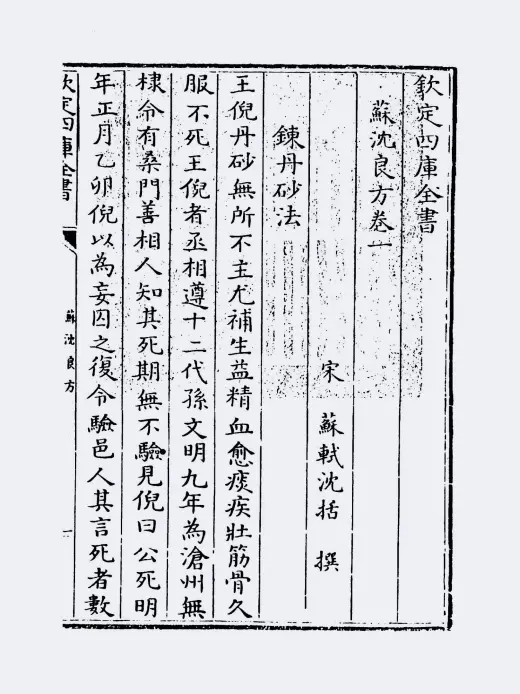 欽定四庫全書
蘇沈良方卷一
宋 蘇軾沈括 撰
鍊丹砂法
王倪丹砂無所不主尤補生益精血愈痰疾壯筋骨久
服不死王倪者丞相遵十二代孫文明九年為滄州無
棣令有桑門善相人知其死期無不驗見倪曰公死明
年正月乙卯倪以為妄囚之復令驗邑人其言死者數
欽定四庫全書
蘇沈良方
一